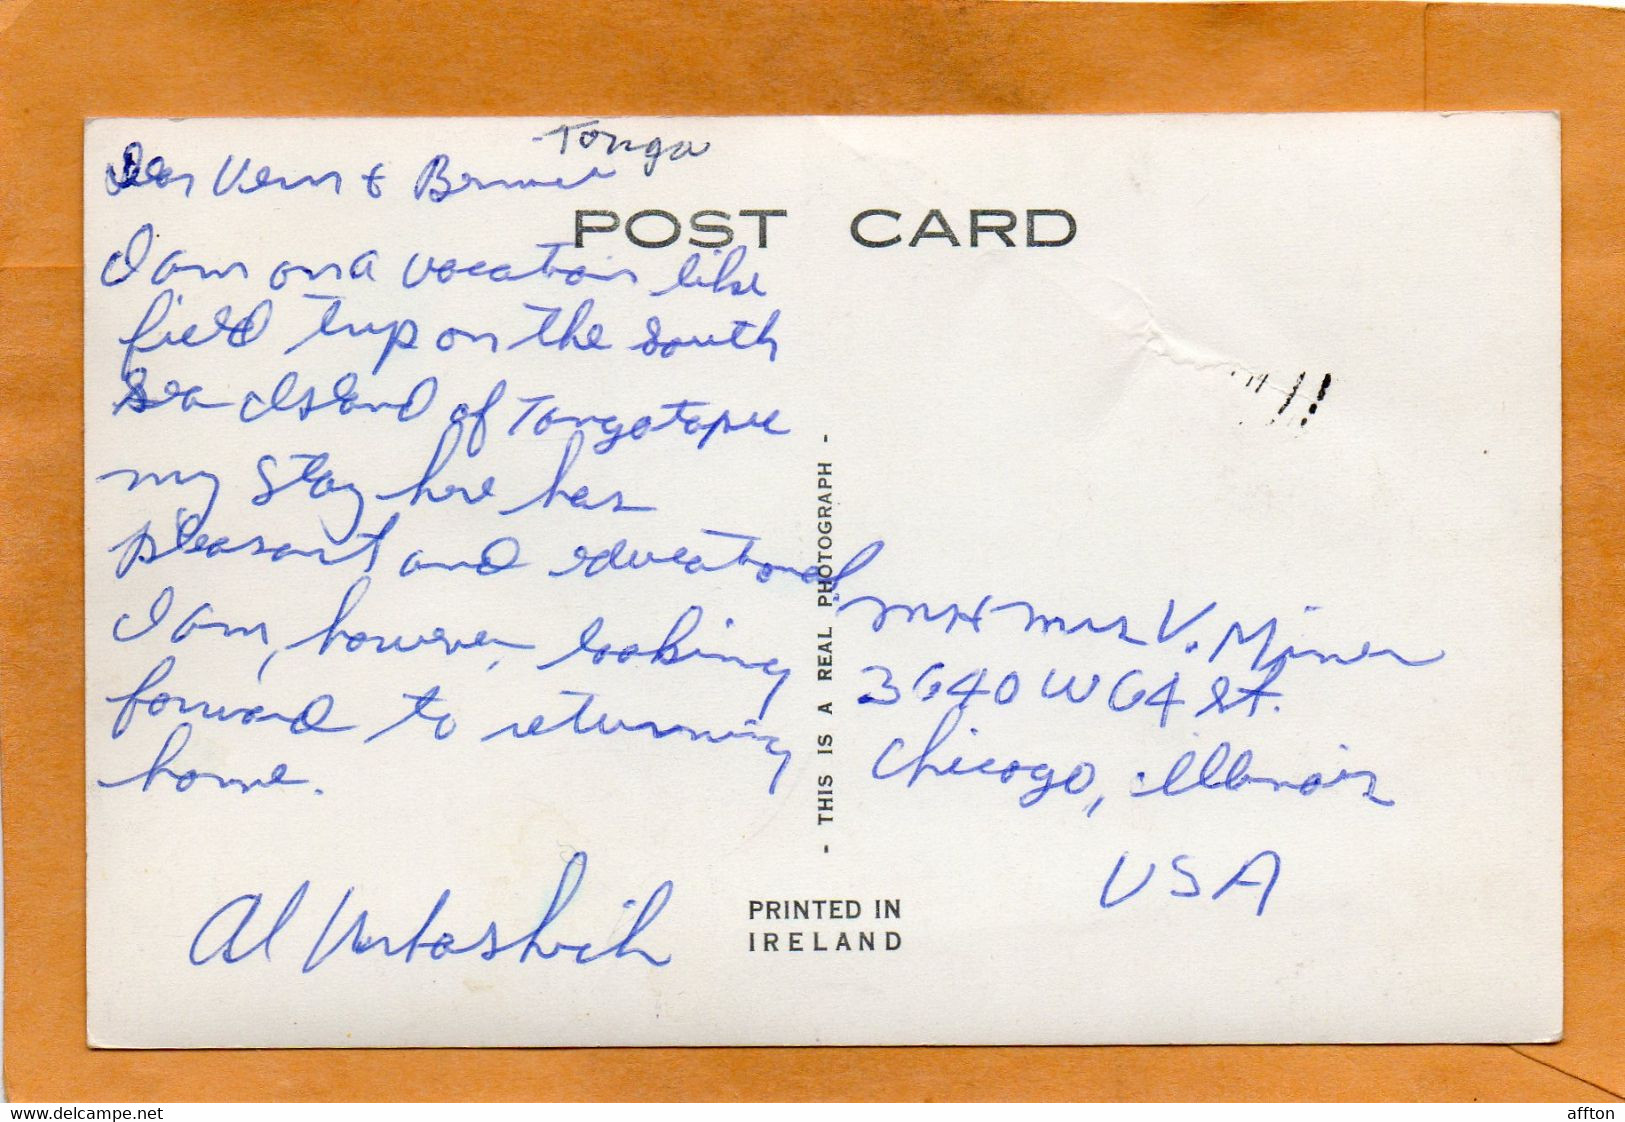 Tonga
Dear Vern & Bernice
POST CARD
I am on a vacation like
field trip on the South
Sea Island of Tongatapu
my stay here has
pleasant and educational.
I am, however, looking
forward to returning
home.
Al
- THIS IS A REAL PHOTOGRAPH -
Mr + Mrs V. Miner
3640 W 64 St.
Chicago, Illinois
USA
PRINTED IN
IRELAND
delcampe.net
affton